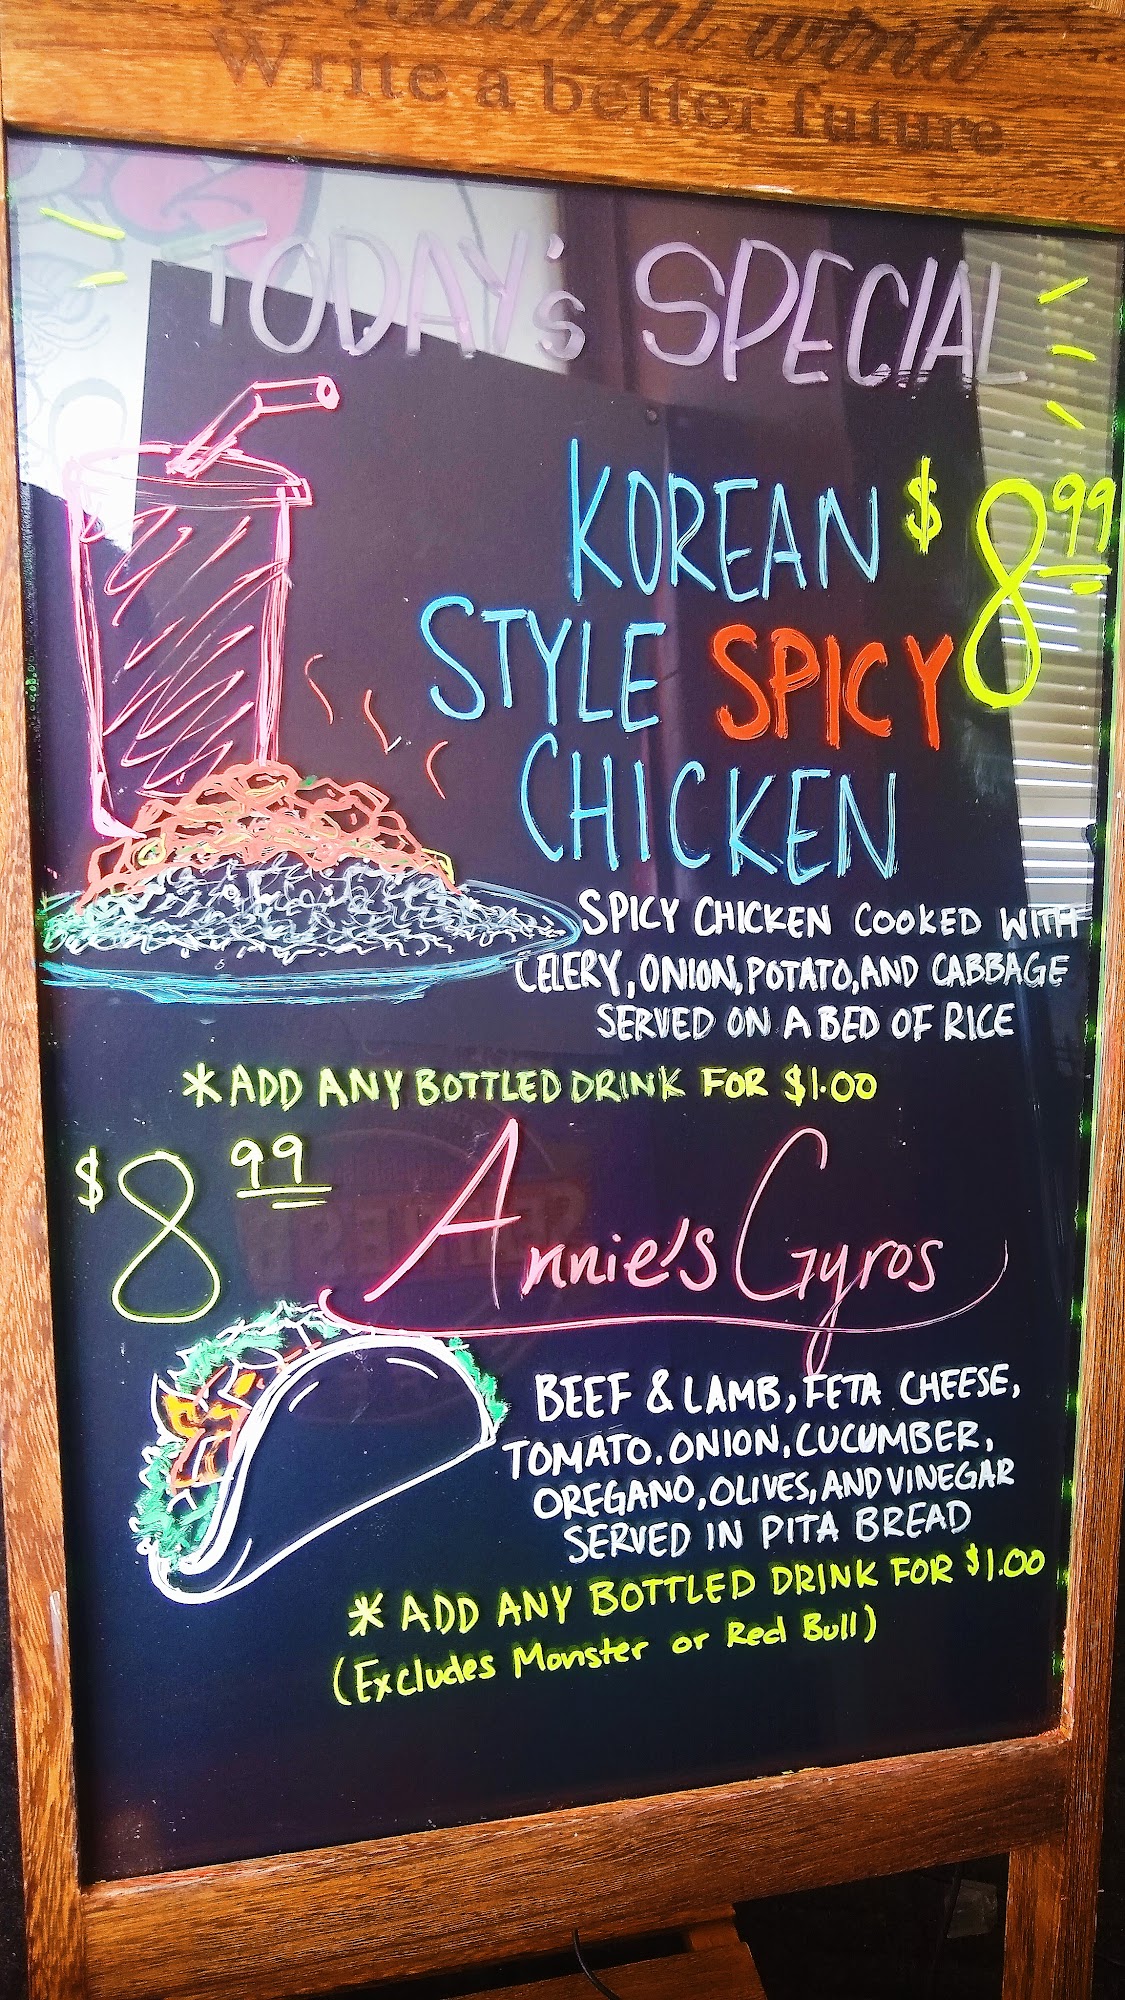 natural wind
Write a better future
TODAY's SPECIAL
KOREAN $8.99
STYLE SPICY
CHICKEN
SPICY CHICKEN COOKED WITH
CELERY, ONION, POTATO, AND CABBAGE
SERVED ON A BED OF RICE
*ADD ANY BOTTLED DRINK FOR $1.00
$8 99 Annie's Gyros
BEEF & LAMB, FETA CHEESE,
TOMATO, ONION, CUCUMBER,
OREGANO, OLIVES, AND VINEGAR
SERVED IN PITA BREAD
* ADD ANY BOTTLED DRINK FOR $1.00
(Excludes Monster or Red Bull)